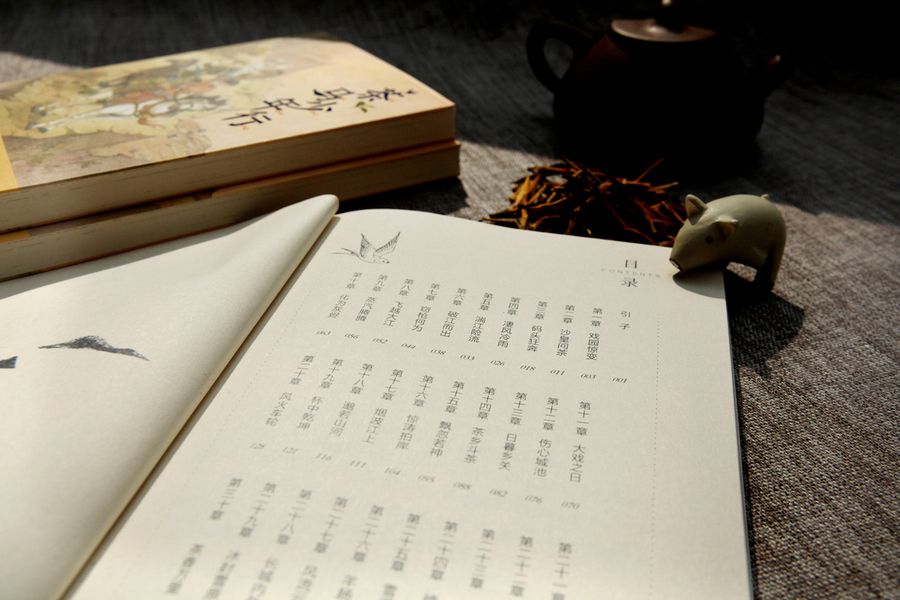 茶马少年行
目录
CONTENTS
引子 001
第一章 戏园惊变 003
第二章 沙皇问茶 011
第三章 码头狂奔 018
第四章 凄风冷雨 026
第五章 湍江险流 033
第六章 破江而出 038
第七章 窃枪何为 044
第八章 飞越大江 052
第九章 蒸汽腾腾 056
第十章 化为灰烬 063
第十一章 大戏之日 070
第十二章 伤心城池 076
第十三章 日暮乡关 082
第十四章 茶乡斗茶 088
第十五章 飘忽若神 095
第十六章 惊涛拍岸 104
第十七章 烟波江上 111
第十八章 邈若山河 116
第十九章 杯中乾坤 121
第二十章 风火车轮 128
第二十一章
第二十二章
第二十三章
第二十四章
第二十五章 雪
第二十六章 羊
第二十七章 风
第二十八章 长城内
第二十九章 冰封雪
第三十章 茶香万里